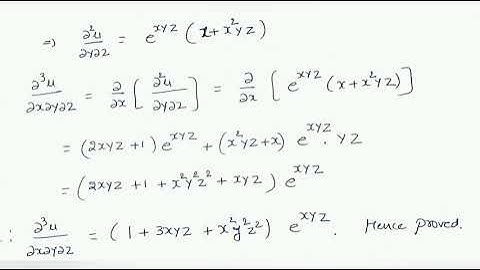 ⇒ ∂²u/∂y∂z = e^xyz (x + x²yz)
∂³u/∂x∂y∂z = ∂/∂x [ ∂²u/∂y∂z ] = ∂/∂x [ e^xyz (x + x²yz) ]
= (2xyz + 1) e^xyz + (x²yz + x) e^xyz . yz
= (2xyz + 1 + x²y²z² + xyz) e^xyz
∴ ∂³u/∂x∂y∂z = (1 + 3xyz + x²y²z²) e^xyz . Hence proved.